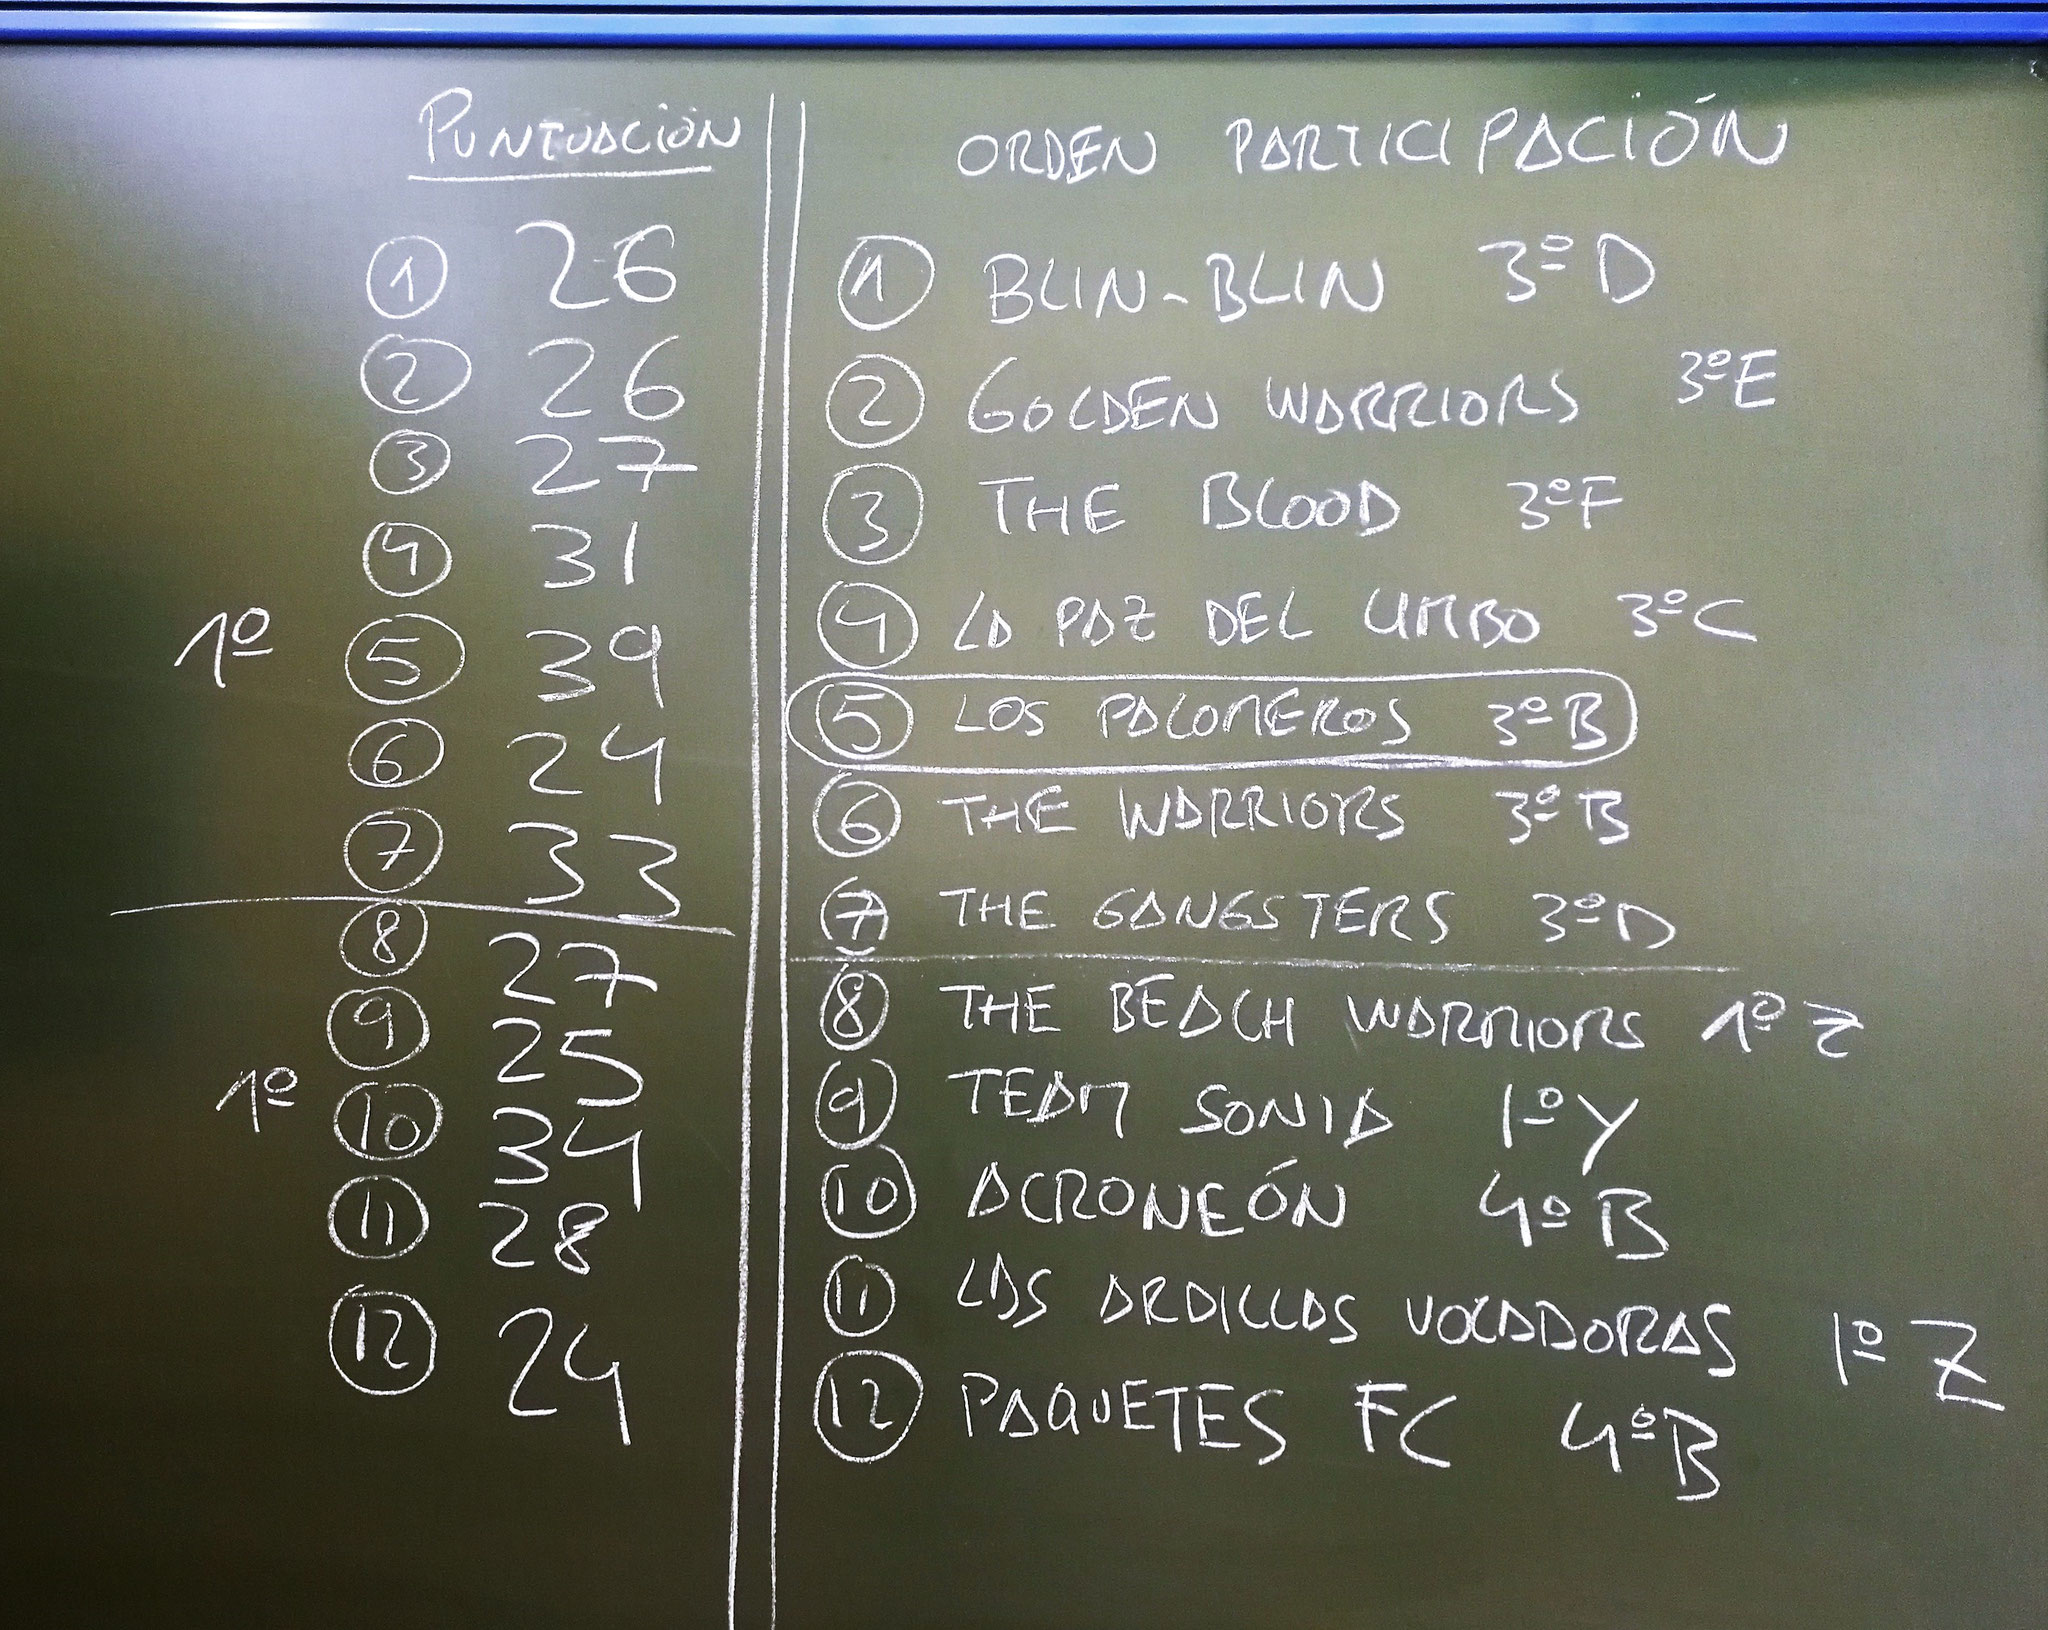 PUNTUACIÓN
1 26
2 26
3 27
4 31
1º 5 39
6 24
7 33
8 27
9 25
1º 10 34
11 28
12 24
ORDEN PARTICIPACIÓN
1 BLIN-BLIN 3ºD
2 GOLDEN WARRIORS 3ºE
3 THE BLOOD 3ºF
4 LA PAZ DEL LIMBO 3ºC
5 LOS PALOMEROS 3ºB
6 THE WARRIORS 3ºB
7 THE GANGSTERS 3ºD
8 THE BEACH WARRIORS 1º Z
9 TEAM SONIA 1º Y
10 ACRONEÓN 4º B
11 LAS ARDILLAS VOLADORAS 1º Z
12 PAQUETES FC 4ºB